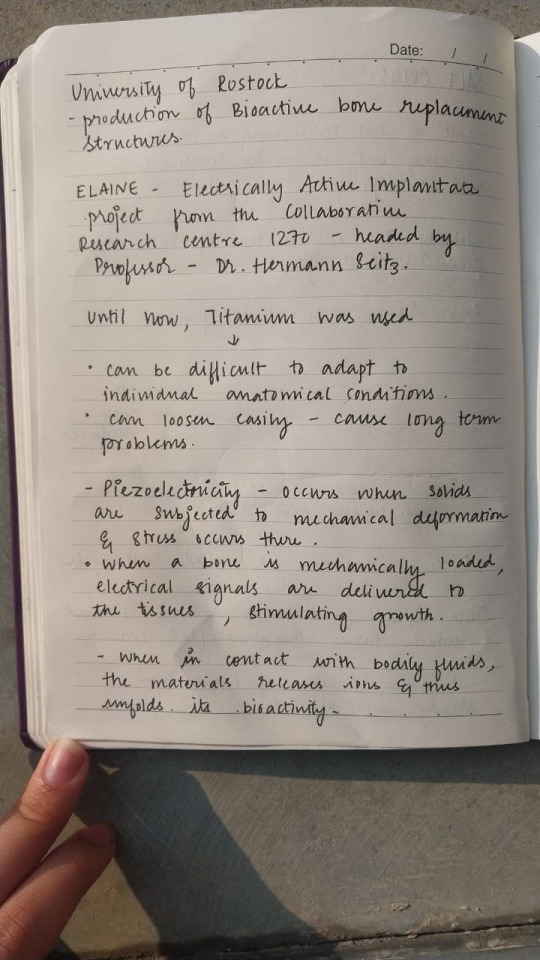 Date: / /
University of Rostock
- production of Bioactive bone replacement
structures.
ELAINE - Electrically Active Implantate
project from the Collaborative
Research centre 1270 - headed by
Professor - Dr. Hermann Seitz.
Until now, Titanium was used
↓
• can be difficult to adapt to
individual anatomical conditions.
• can loosen easily - cause long term
problems.
- Piezoelectricity - occurs when solids
are subjected to mechanical deformation
& stress occurs there.
• When a bone is mechanically loaded,
electrical signals are delivered to
the tissues, stimulating growth.
- when in contact with bodily fluids,
the materials releases ions & thus
unfolds its bioactivity-